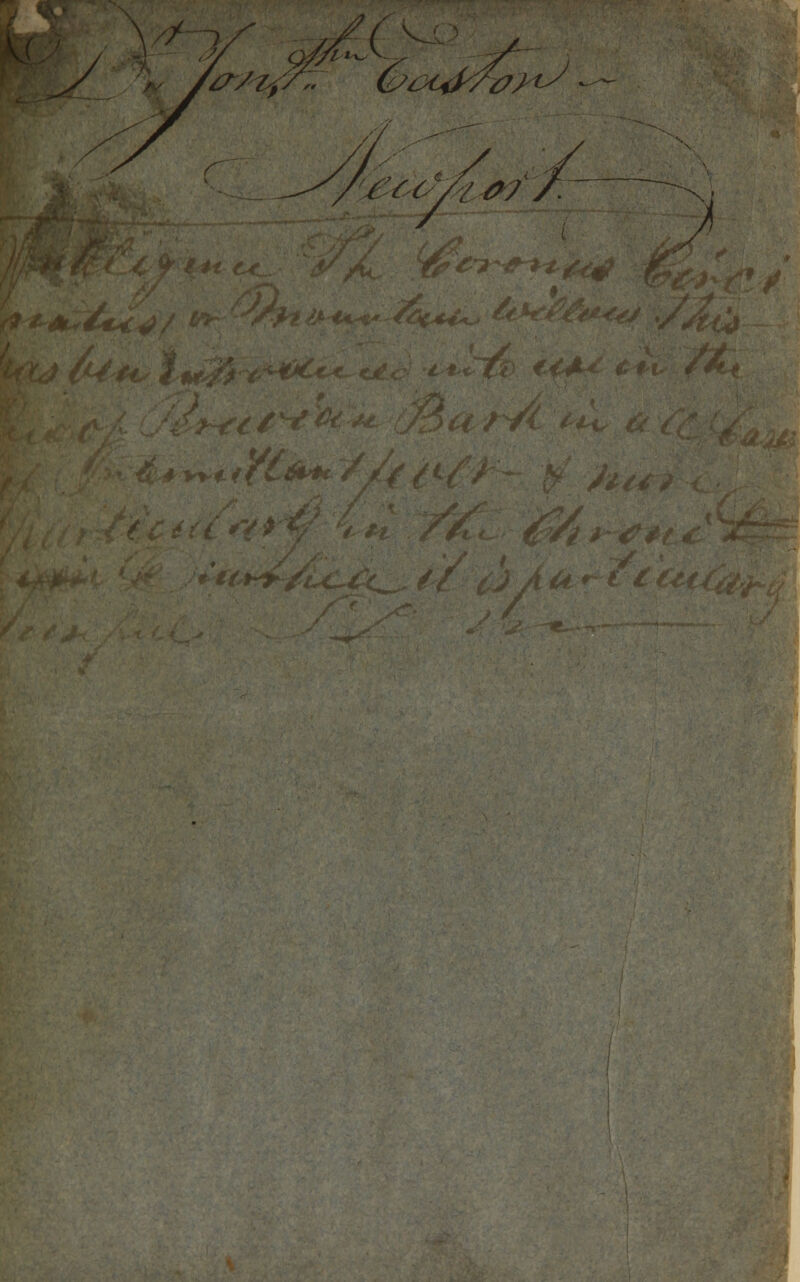 Dr Jonthn Easton
Newport.
Intelligence Th Coronus Circi
natus, or Mountain Willow This
has ben Introduced into use in the
of Peruvian Bark in all Cases
of Intermittant fever & more
particularly in the Chronic
Diarrhea it is particularly
useful